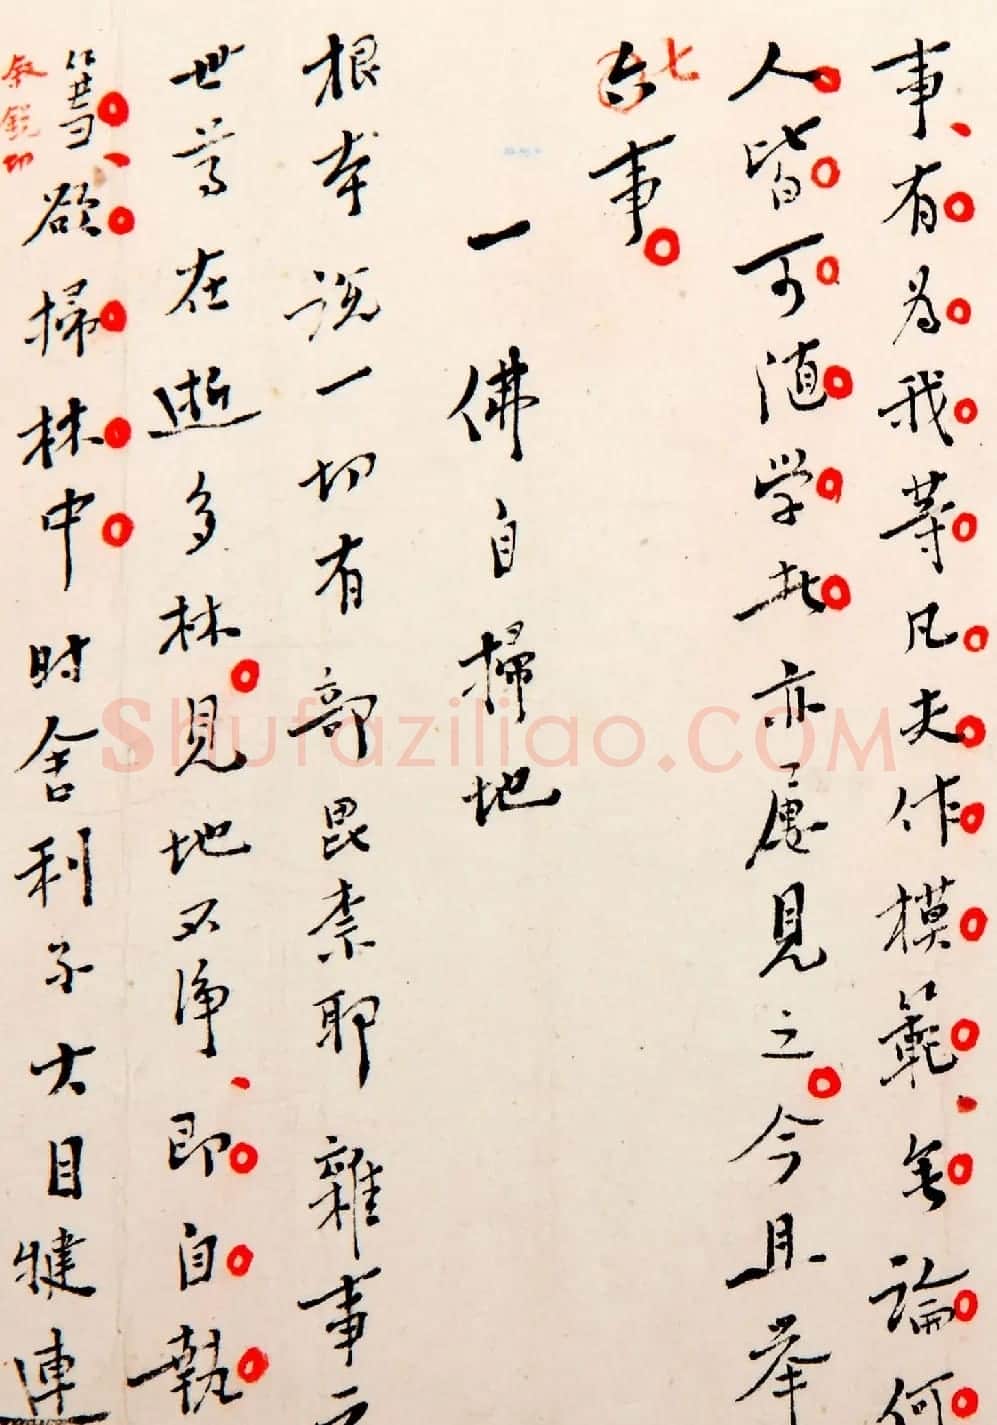 事、有為我等凡夫作模範、無論何
人皆可随学此亦屬見之。今且举
六七事。
一 佛自掃地
根本說一切有部毘柰耶雜事
世尊在逝多林。見地不淨、即自執
篲、欲掃林中时舍利子大目犍連
叙銳切
Shufaziliao.COM